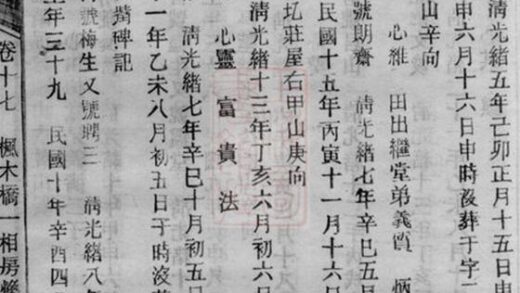 清光緒五年己卯正月十五日申
申六月十六日申時歿葬于字二
山辛向
心維 田出繼堂弟義質 炳
號朗齋 清光緒七年辛巳五月
民國十五年丙寅十一月十六日
圪莊屋右甲山庚向
清光緒十三年丁亥六月初六日
心靈 富貴法
清光緒七年辛巳十月初五日
十一年乙未八月初五日子時歿葬
碑記
年三十九 民國十年辛酉四
號梅生又號聘三 清光緒八年
卷十七 楓木橋一相房